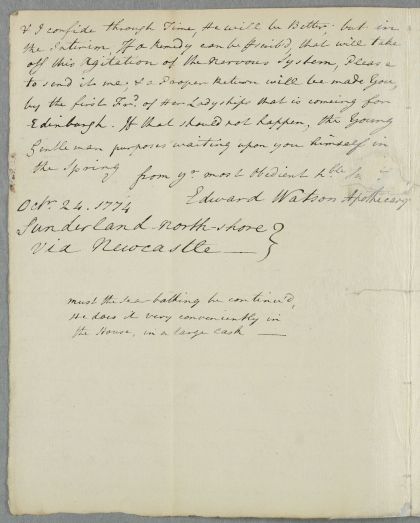 & I confide through Time, He will be Better; but in
the Interim, If a Remedy can be that will take
off this Agitation of the Nervous System, Please
to send it me; & a Proper Return will be made You,
by the first Frd. of Her Ladyships that is comeing for
Edinburgh. If that should not happen, the Young
Gentleman purposes waiting upon you himself in
the Spring from yr. most Obedient hble
Edward Watson Apothecary
Octr. 24. 1774
Sunderland north-shore
via Newcastle —
must the sea-bathing be continu'd,
He does it very conveniently in
the House, in a large Cask —